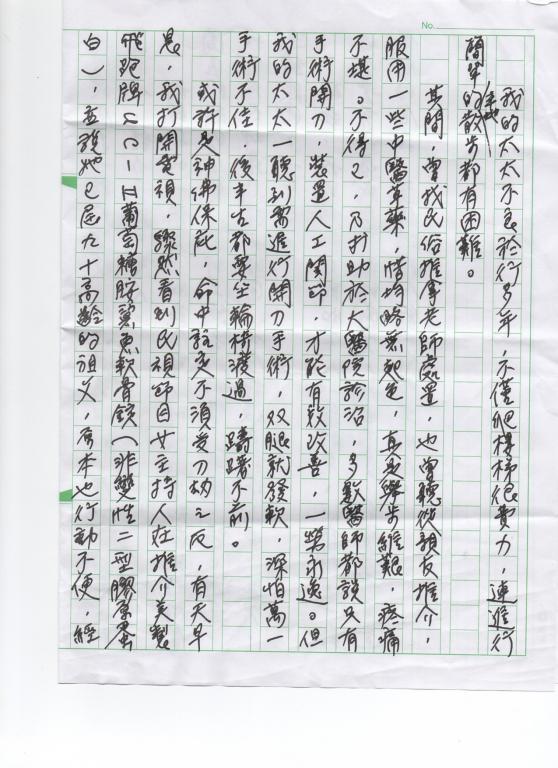 No.
我的太太不良於行多年，不僅爬樓梯很費力，連進行
簡單的散步都有困難。
其間，曾找民俗推拿老師處置，也曾聽從親友推介，
服用一些中醫草藥，惜均略無起色，真是舉步維艱，疼痛
不堪。不得已，乃打助於大醫院診治，多數醫師都說只有
手術開刀，裝置人工關節，才能有效改善，一勞永逸。但
我的太太一聽到需進行開刀手術，双腿就發軟，深怕萬一
手術不佳，後半古都要坐輪椅渡過，躊躇不前。
或許是神佛保庇，命中註定不須受刀劫之厄，有天早
晨，我打開電視，驟然看到民視節目女主持人在推介美製
飛跑牌UC-II葡萄糖胺鯊魚軟骨錠（非變性二型膠原蛋
白），並說她已屆九十高齡的祖父，原本也行動不便，經